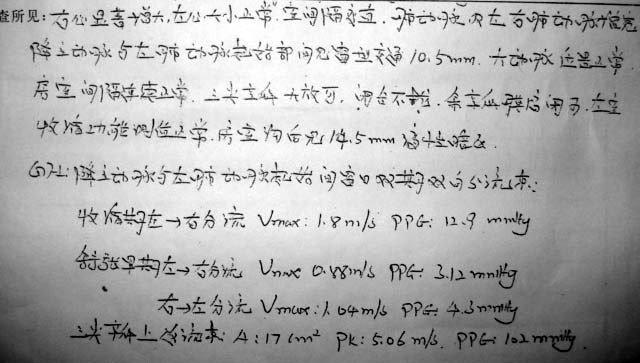 查所见:右心显著增大,左心大小正常.室间隔变直.肺动脉及左右肺动脉增宽
降主动脉与左肺动脉起始部间见窗型交通10.5mm.大动脉位置正常
房室间隔连续正常.三尖瓣大放可,闭合不拢.余瓣膜启闭可.左室
收缩功能测值正常.房室沟后见14.5mm液性暗区.
CDFI:降主动脉与左肺动脉起始间窗口双期双向分流束:
收缩期左→右分流 Vmax:1.8m/s PPG:12.9 mmHg
舒张早期左→右分流 Vmax 0.88m/s PPG:3.12mmHg
右→左分流 Vmax:1.04m/s PPG:4.3mmHg
三尖瓣上返流束:A:17cm² PK:5.06m/s. PPG:102mmHg.